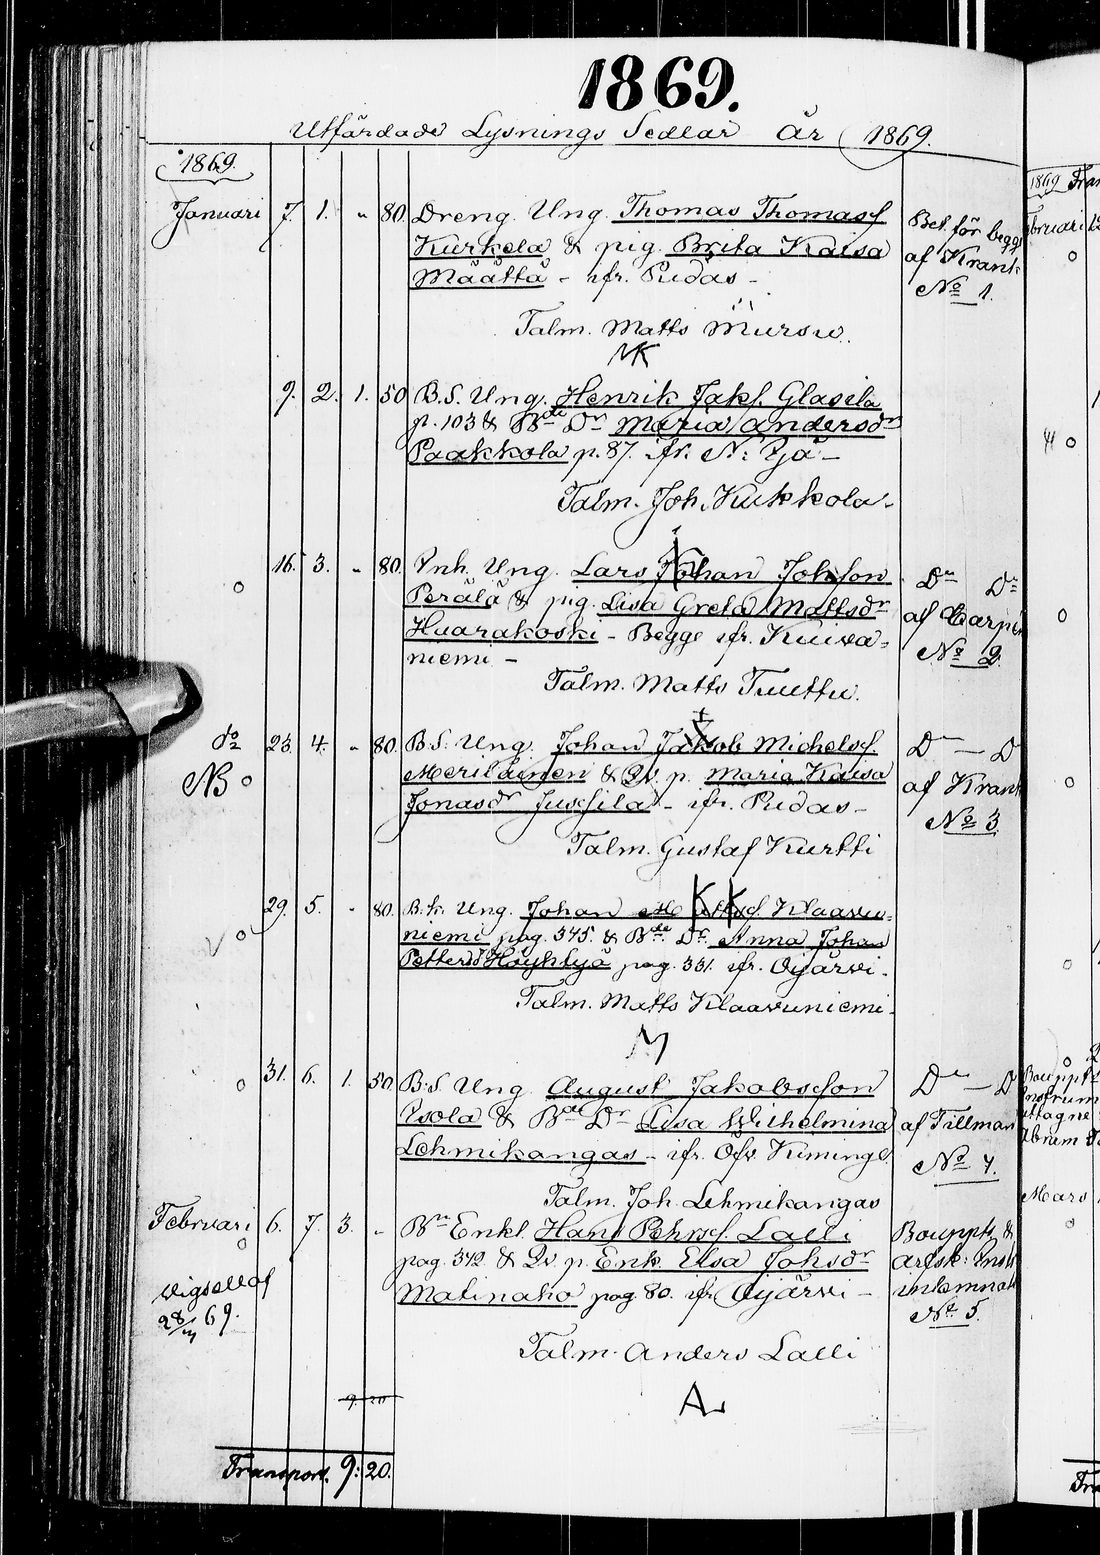 1869.
Utfärdade Lysnings Sedlar År 1869.
1869.
Januari 7. 1. " 80. Dreng. Ung. Thomas Thomasf
Kurkela & pig. Brita Kaisa
Määttä - ifr. Pudas -
Talm. Matts Mursu.
MK
Bet. för begge
af Krank
No 1.
9. 2. 1. 50 B.S. Ung. Henrik Jakf. Glasila
p. 103 & Bde Dr Maria Andersdr
Paakkola p. 87. ifr. N: Ijä -
Talm. Joh. Kukkola.
16. 3. - 80. Inh. Ung. Lars Johan Johsson
Perälä & pig. Lisa Greta Mattsdr
Huarakoski - Begge ifr. Kuiva=
niemi -
Talm. Matts Tuuttu.
Do Do
af Carpin
No 2.
do 23. 4. - 80. B.S. Ung. Johan Jakob Michelsf.
NB Meriläinen & Qv. p. Maria Kaisa
Jonasdr Jussila - ifr. Pudas -
Talm. Gustaf Kurtti
D — D
af Krank
No 3
29. 5. - 80. B.k. Ung. Johan Mattsf. Klaavu=
niemi pag. 345. & Bde Dr Anna Johan
Pettersdr Höyhtyä pag. 331. ifr. Oijärvi.
Talm. Matts Klaavuniemi.
M
31. 6. 1. 50 B.S. Ung. August Jakobsson
Isola & Bde Dr Lisa Wilhelmina
Lehmikangas - ifr. Öfv. Kiminge
Talm. Joh. Lehmikangas
D — D
af Tillman
No 4.
Februari 6. 7. 3. - Bde Enkl. Hans Pehrsf. Lalli
pag. 342 & Qv. p. Enk. Elsa Johsdr
Matinaho pag. 80. ifr. Oijärvi -
Talm. Anders Lalli
AL
Bouppts &
arfsk: Inst
inlemnat
No 5.
Vigsel af
28/3 69.
9. 20
Transport. 9: 20.
1869
Februari
Mars